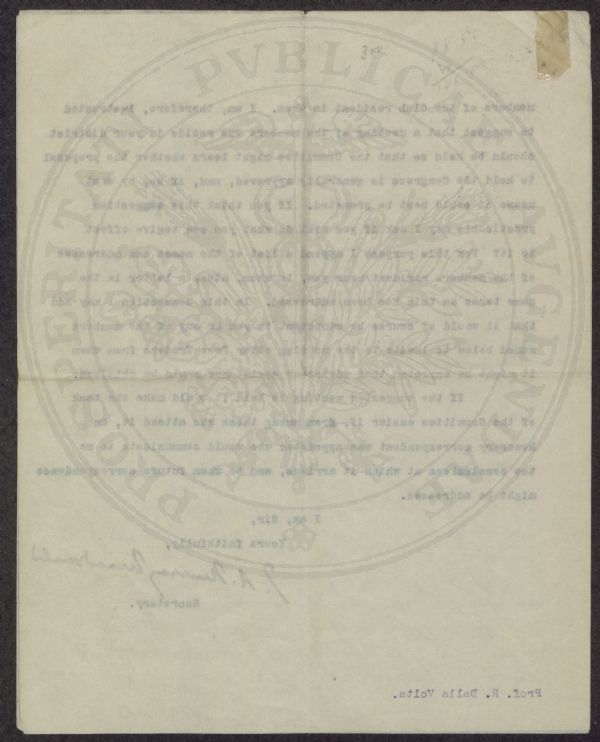 members of the Club resident in them. I am, therefore, instructed
to suggest that a meeting of the members who reside in your district
should be held so that the Committee might learn whether the proposal
to hold the Congress is generally approved, and, if so, by what
means it could best be promoted. If you think this suggestion
practicable may I ask if you will do what you can togive effect
to it? For this purpose I append a list of the names and addresses
of the Members resident near you, to whom, also, a letter in the
same terms as this has been addressed. In this connection I may add
that it would of course be competent to you or any of the members
named below to invite to the meeting other Free Traders from whom
it might be expected that assistance would be obtained.
If the suggested meeting is held it would make the task
of the Committee easier if, from among those who attend it, an
honorary correspondent was appointed who would communicate to me
the conclusions at which it arrives, and to whom future correspondence
might be addressed.
I am, Sir,
Yours faithfully,
J. A. Murray Macdonald
Secretary.
Prof. R. Dalla Volta.
PROSPERITATI PVBLICAE AVGENDAE